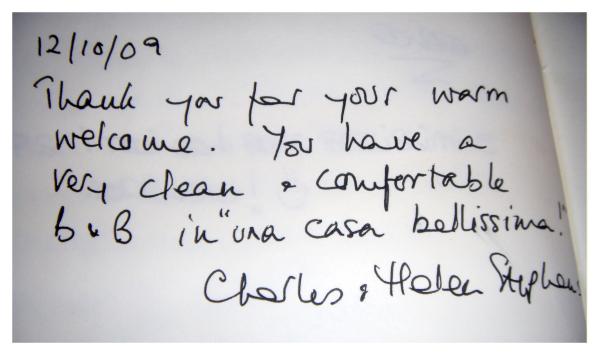 12/10/09
Thank you for your warm
welcome. You have a
very clean & comfortable
B & B in "una casa bellissima!"
Charles & Helen Stephens